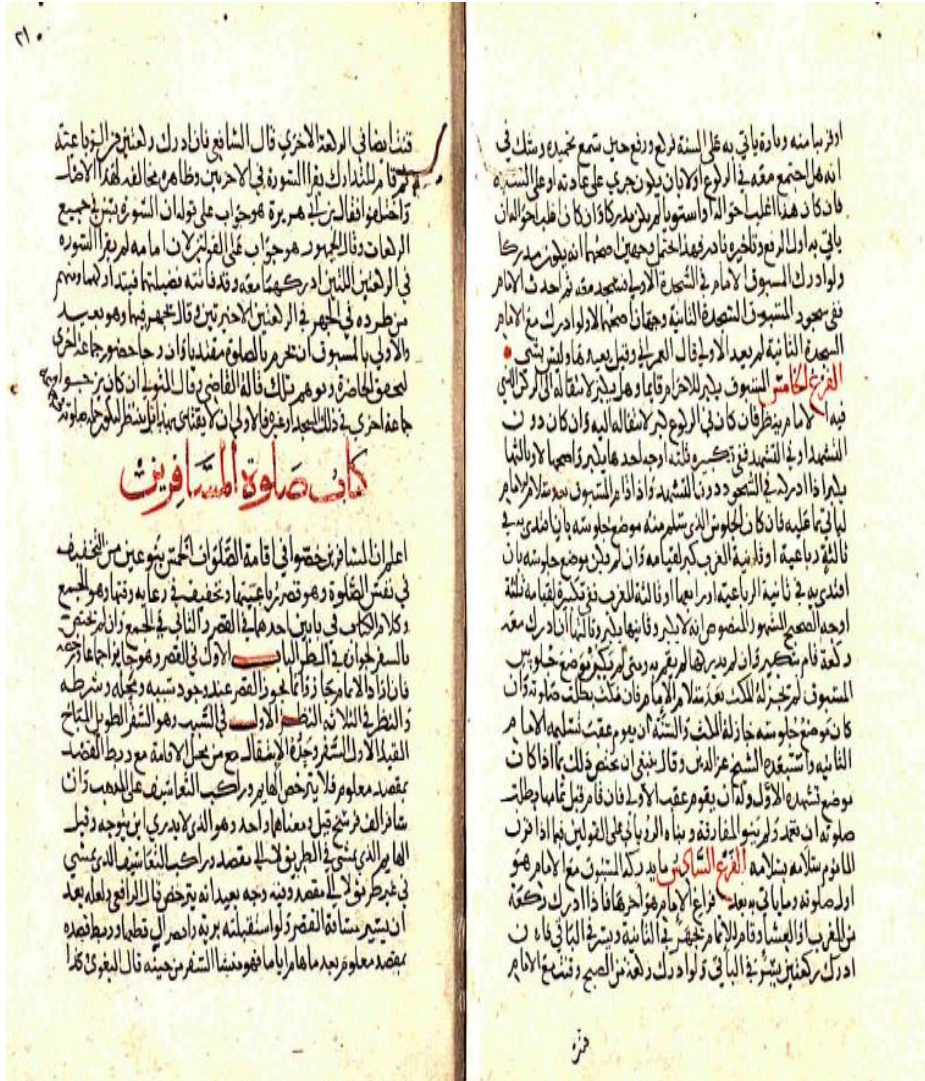 او قريبا منه وتارة ياتي به على السنة فركع ورفع حين سمع تحميده وشك في
انه هل اجتمع معه في الركوع اولا بان يكون جرى على عادته او على السنة
فان كان هذا اغلب احواله او استويا لم يكن مدركا وان كان غلب احواله ان
ياتي به اول الرفع وتاخيره نادر فهذا محتمل وجهين اصحهما انه يكون مدركا
ولو ادرك المسبوق الامام في السجدة الاولى فسجد معه ثم احدث الامام
ففي سجود المسبوق السجدة الثانية وجهان اصحهما لا ولو ادرك مع الامام
السجدة الثانية لم يعد الاولى قال العمراني وقيل يعيدها وليس بشي
الفرع الخامس المسبوق يكبر للاحرام قايما وهل يكبر لانتقاله الى الركن الذي
فيه الامام ينظر فان كان في الركوع كبر لانتقاله اليه وان كان دون
التشهد او في التشهد ففي تكبيره ثلثة اوجه احدها يكبر واصحها لا وثالثها
يكبر اذا ادركه في السجود دون التشهد واذا قام المسبوق بعد سلام الامام
لياتي بما عليه فان كان الجلوس الذي سلم منه موضع جلوسه بان اقتدى به في
ثالثة رباعية او ثانية المغرب كبر لقيامه وان لم يكن موضع جلوسه بان
اقتدى به في ثانية الرباعية او رابعها او ثالثة المغرب ففي تكبيره لقيامه ثلثة
اوجه الصحيح المشهور المنصوص انه لا يكبر وثانيها يكبر وثالثها ان ادرك معه
ركعة قام بتكبير وان لم يدركها لم يقم به ومتى لم يكن موضع جلوس
المسبوق لم يجز له المكث بعد سلام الامام فان مكث بطلت صلوته وان
كان موضع جلوسه جاز له المكث والسنة ان يقوم عقب تسليمه الامام
الثانيه واستبعده الشيخ عز الدين وقال ينبغي ان يختص ذلك بما اذا كان
موضع تشهده الاول وله ان يقوم عقب الاولى فان قام قبل تمامها بطلت
صلوته ان تعمد ولم ينو المفارقة وبناه الروياني على القولين فيما اذا قرن
الماموم سلامه بسلامه الفرع السادس ما يدركه المسبوق مع الامام هو
اول صلوته وما ياتي به بعد فراغ الامام هو اخرها فاذا ادرك ركعة
من المغرب او العشا وقام للاتمام جهر في الثانية ويسر في الباقي فان
ادرك ركعتين يسر في الباقي ولو ادرك ركعة من الصبح وقنت مع الامام
قنت
٢١
قنت ايضا في الركعة الاخرى قال الشافعي فان ادرك ركعتين من الرباعية
ثم قام للتدارك يقرا السورة في الاخرتين وظاهره مخالفه لهذا الاصل
واختلفوا فقال ابن ابي هريرة هو جواب على قوله ان السورة تسن في جميع
الركعات وقال الجمهور هو جواب على القولين لان امامه لم يقرا السورة
في الركعتين اللتين ادركهما معه وقد فاتته فضيلتها فيتداركها ومنهم
من طرده في الجهر في الركعتين الاخيرتين وقال يجهر فيهما وهو بعيد
والاولى بالمسبوق ان يحرم بالصلوة مقتديا وان رجا حضور جماعة اخرى
لتحقق الحاضرة وتوهم تلك قاله القاضي وقال المتولي ان كان يرجو اقامة
جماعة اخرى في ذلك المسجد او غيره فالاولى ان لا يقتدى بهذا بل ينتظر ليكون جملة صلوته بجماعة
كتاب صلوة المسافرين
اعلم ان المسافرين خصوا في اقامة الصلوات الخمس بنوعين من التخفيف
في نفس الصلوة وهو قصر رباعيتها وتخفيف في رعاية وقتها وهو الجمع
وكلام الكتاب في بابين احدهما في القصر والثاني في الجمع وان لم يختص
بالسفر لجوازه في المطر الباب الاول في القصر وهو جايز اجماعا وترخصه
فان اراد الامام جاز وانما يجوز القصر عند وجود سببه ومحله وشرطه
والنظر في الثلاثة النظر الاول في السبب وهو السفر الطويل المباح
القيد الاول السفر وحده الانتقال مع من محل الاقامة مع ربط القصد
بمقصد معلوم فلا يترخص الهايم وراكب التعاسيف على المذهب وان
سافر الف فرسخ قيل معناها واحد وهو الذي لا يدري اين يتوجه وقيل
الهايم الذي يمشي في الطريق لا الى مقصد وراكب التعاسيف الذي يمشي
في غير طريق لا الى مقصد وفيه وجه بعيد انه يترخص قال الرافعي ولعله بعد
ان يسير مسافة القصر ولو استقبلته برية واضطر الى قطعها وربط قصده
بمقصد معلوم بعد ما هام اياما فهو منشئ السفر من حينه قال البغوي وكذا